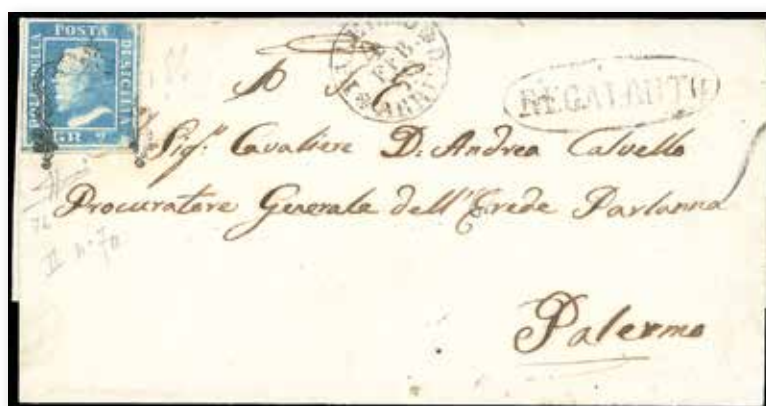 BOLLO DELLA POSTA DI SICILIA
GR. 2
FEB.
ARRIVO
A S. E.
Sig.r Cavaliere D: Andrea Calvello
Procuratore Generale dell'Erede Parlanna
Palermo